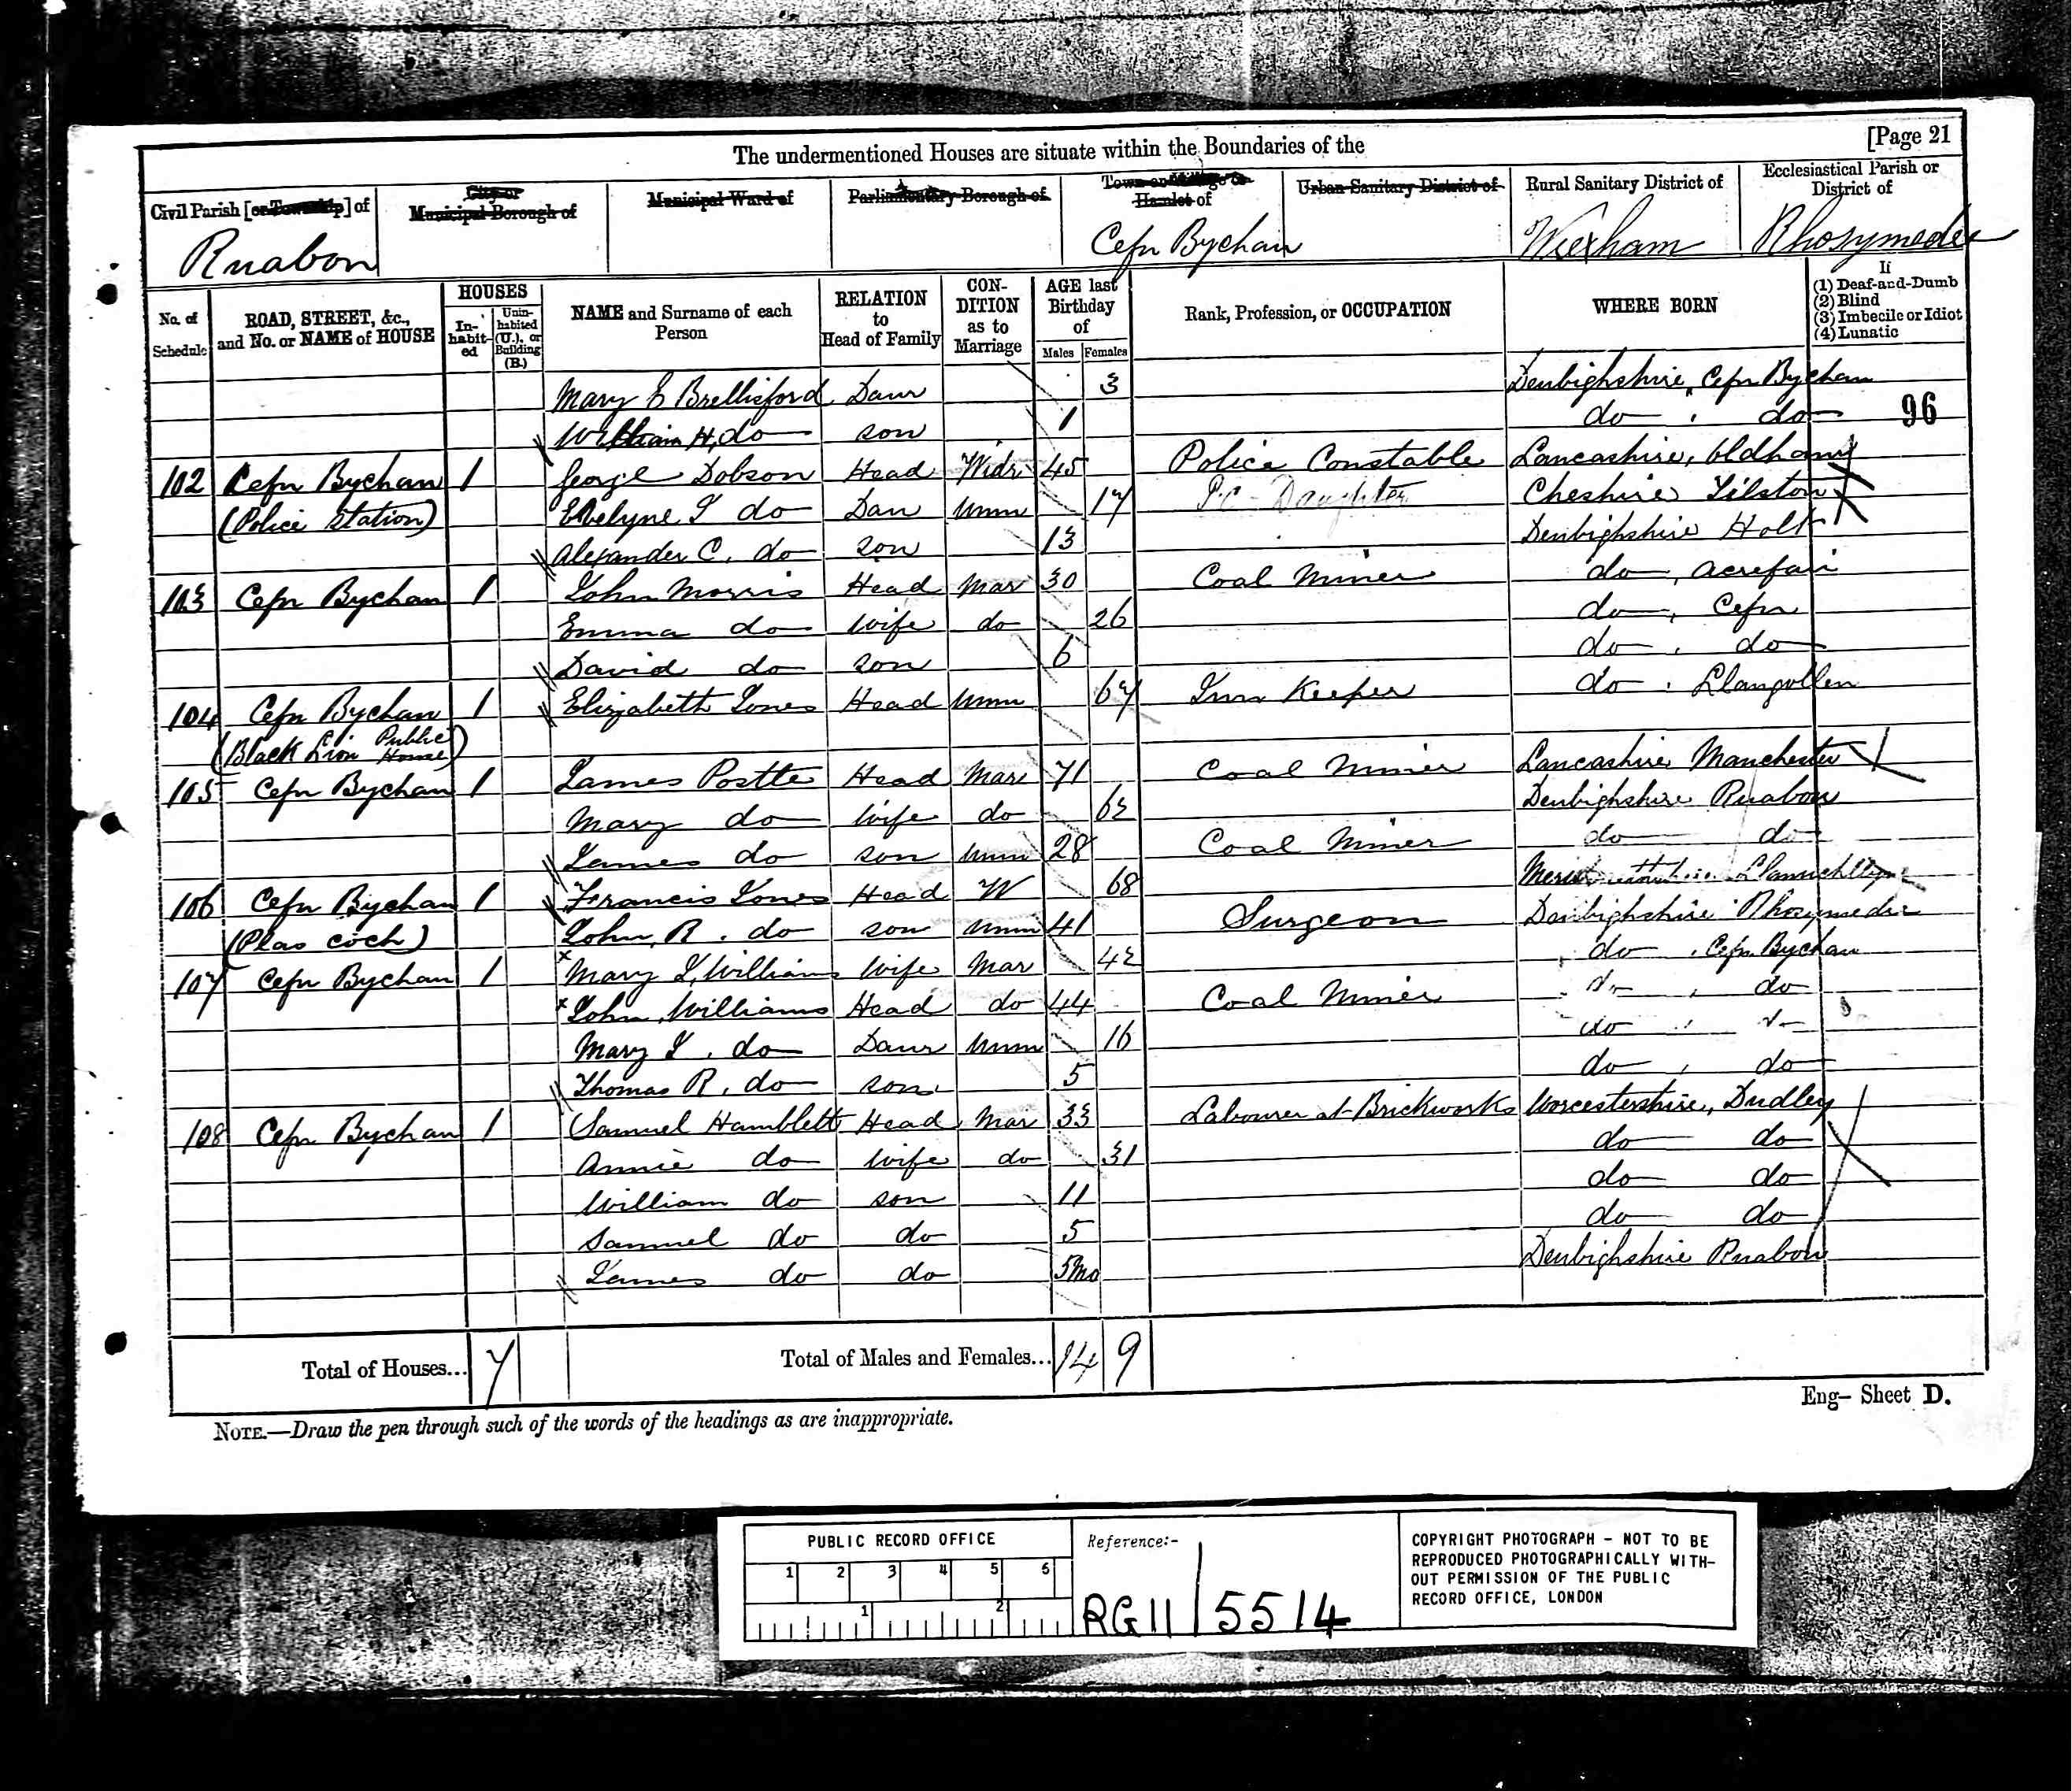 [Page 21
The undermentioned Houses are situate within the Boundaries of the
Civil Parish [or Township] of
City or Municipal Borough of
Municipal Ward of
Parliamentary Borough of
Town or Village or Hamlet of
Urban Sanitary District of
Rural Sanitary District of
Ecclesiastical Parish or District of
Ruabon Cefn Bychan Wrexham Rhosymedre
No. of Schedule
ROAD, STREET, &c., and No. or NAME of HOUSE
HOUSES
In-habit-ed
Unin-habited (U.), or Building (B.)
NAME and Surname of each Person
RELATION to Head of Family
CON-DITION as to Marriage
AGE last Birthday of
Males Females
Rank, Profession, or OCCUPATION
WHERE BORN
If
(1) Deaf-and-Dumb
(2) Blind
(3) Imbecile or Idiot
(4) Lunatic
Mary E Brellisford Daur 3 Denbighshire, Cefn Bychan
William H. do son 1 do , do 96
102 Cefn Bychan 1 George Dobson Head Widr 45 Police Constable Lancashire, Oldham
(Police Station) Evelyne I do Dau Unm 17 P.C - Daughter Cheshire Tilston
Alexander C. do son 13 Denbighshire Holt
103 Cefn Bychan 1 John Morris Head Mar 30 Coal Miner do , Acrefair
Emma do Wife do 26 do , Cefn
David do son 6 do , do
104 Cefn Bychan 1 Elizabeth Jones Head Unm 67 Inn Keeper do , Llangollen
(Black Lion Public House)
105 Cefn Bychan 1 James Postle Head Mar 71 Coal Miner Lancashire Manchester
Mary do Wife do 62 Denbighshire Ruabon
James do son Unm 28 Coal Miner do do
106 Cefn Bychan 1 Francis Jones Head W 68
(Plas Coch) John R. do son Unm 41 Surgeon Denbighshire Rhosymedre
107 Cefn Bychan 1 x Mary I, Williams Wife Mar 42 do , Cefn Bychan
x John, Williams Head do 44 Coal Miner do , do
Mary I. do Daur Unm 16 do , do
Thomas R. do son 5 do , do
108 Cefn Bychan 1 Samuel Hamblett Head Mar 33 Labourer at Brickworks Worcestershire, Dudley
Annie do Wife do 31 do do
William do son 11 do do
Samuel do do 5 do do
James do do 5mo Denbighshire Ruabon
Total of Houses... 7 Total of Males and Females... 14 9
Eng– Sheet D.
NOTE.—Draw the pen through such of the words of the headings as are inappropriate.
PUBLIC RECORD OFFICE
1 2 3 4 5 6
1 2
Reference:-
RG11/5514
COPYRIGHT PHOTOGRAPH – NOT TO BE
REPRODUCED PHOTOGRAPHICALLY WITH–
OUT PERMISSION OF THE PUBLIC
RECORD OFFICE, LONDON